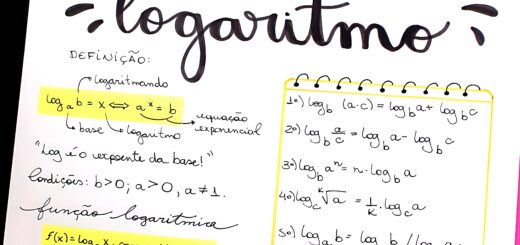 logaritmo
DEFINIÇÃO:
logaritmando
log_a b = x ⇔ a^x = b
equação
exponencial
base
logaritmo
"Log é o expoente da base!"
Condições: b>0; a>0, a≠1.
função logarítmica
f(x) = log
1º) log_b (a·c) = log_b a + log_b c
2º) log_b a/c = log_b a - log_b c
3º) log_b a^n = n·log_b a
4º) log_c ᴷ√a = 1/K · log_c a
5º) log_a b = log b / log a